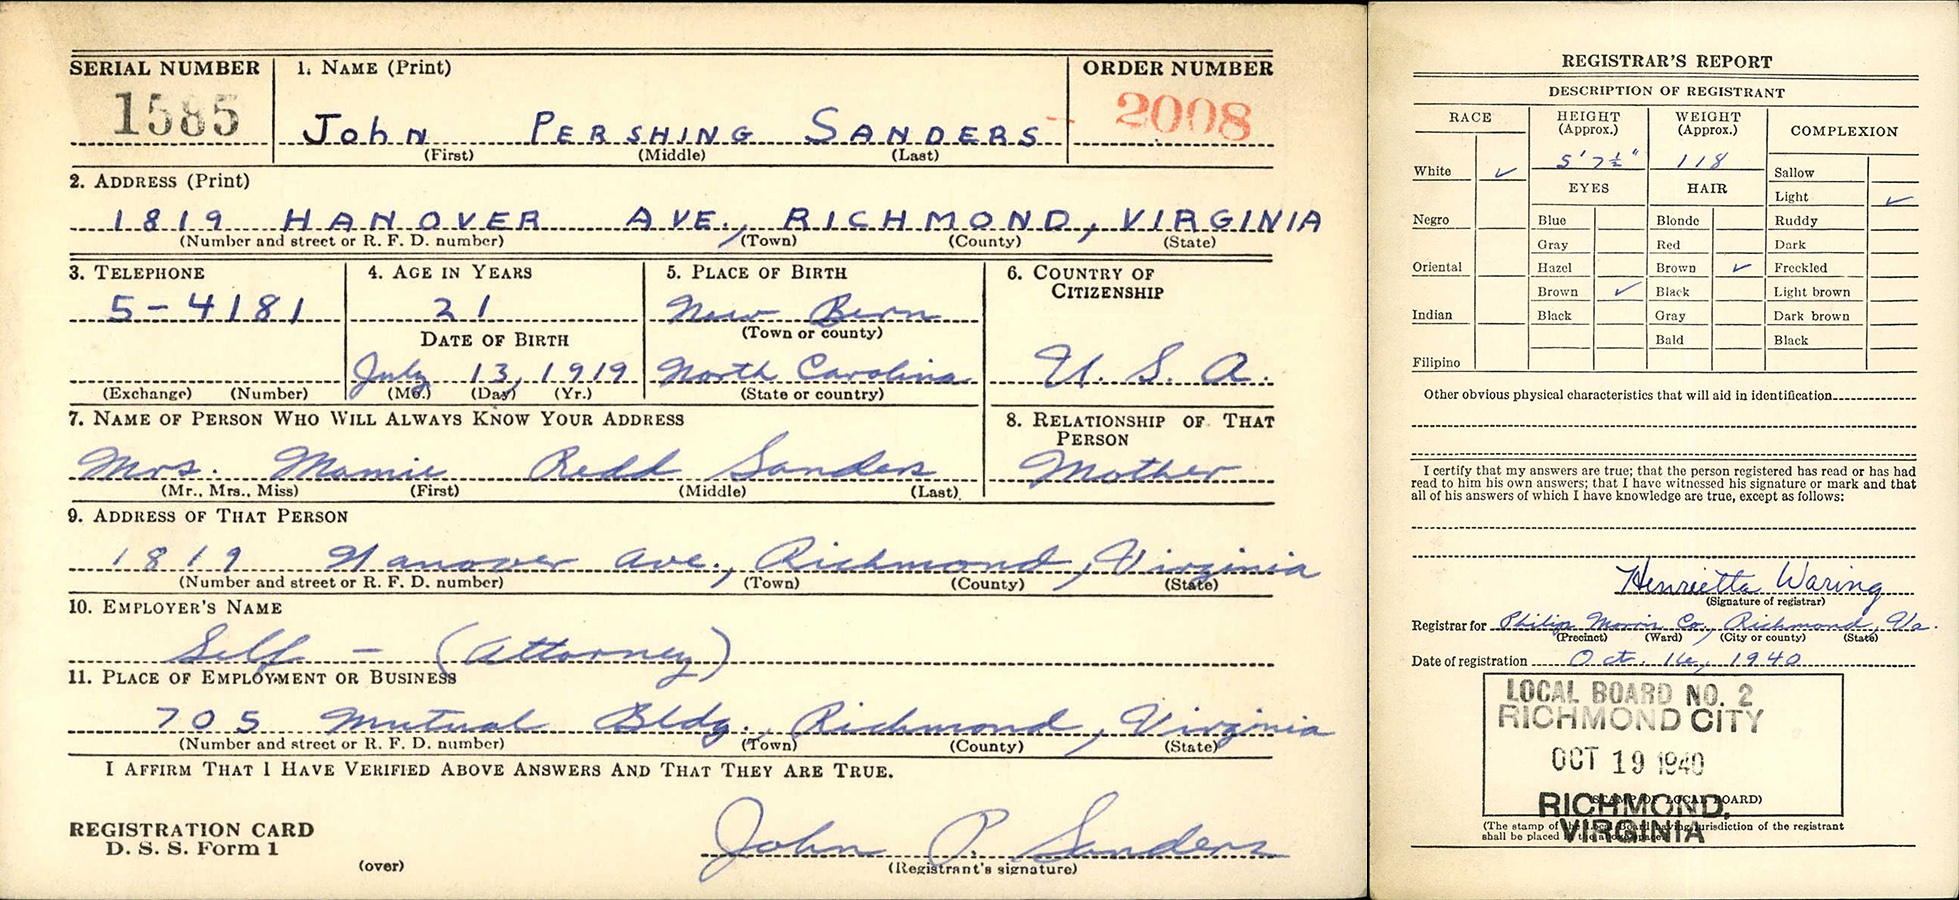 SERIAL NUMBER
1585
1. NAME (Print)
JOHN PERSHING SANDERS
(First) (Middle) (Last)
ORDER NUMBER
2008
2. ADDRESS (Print)
1819 HANOVER AVE., RICHMOND, VIRGINIA
(Number and street or R. F. D. number) (Town) (County) (State)
3. TELEPHONE
5-4181
(Exchange) (Number)
4. AGE IN YEARS
21
DATE OF BIRTH
July 13, 1919
(Mo.) (Day) (Yr.)
5. PLACE OF BIRTH
New Bern
(Town or county)
North Carolina
(State or country)
6. COUNTRY OF
CITIZENSHIP
U. S. A.
7. NAME OF PERSON WHO WILL ALWAYS KNOW YOUR ADDRESS
Mrs. Mamie Redd Sanders
(Mr., Mrs., Miss) (First) (Middle) (Last)
8. RELATIONSHIP OF THAT
PERSON
Mother
9. ADDRESS OF THAT PERSON
1819 Hanover Ave., Richmond, Virginia
(Number and street or R. F. D. number) (Town) (County) (State)
10. EMPLOYER'S NAME
Self - (Attorney)
11. PLACE OF EMPLOYMENT OR BUSINESS
705 Mutual Bldg., Richmond, Virginia
(Number and street or R. F. D. number) (Town) (County) (State)
I AFFIRM THAT I HAVE VERIFIED ABOVE ANSWERS AND THAT THEY ARE TRUE.
REGISTRATION CARD
D. S. S. Form 1
(over)
John P. Sanders
(Registrant's signature)
REGISTRAR'S REPORT
DESCRIPTION OF REGISTRANT
RACE
White ✓
Negro
Oriental
Indian
Filipino
HEIGHT
(Approx.)
5' 7½"
WEIGHT
(Approx.)
118
EYES
Blue
Gray
Hazel
Brown ✓
Black
HAIR
Blonde
Red
Brown ✓
Black
Gray
Bald
COMPLEXION
Sallow
Light ✓
Ruddy
Dark
Freckled
Light brown
Dark brown
Black
Other obvious physical characteristics that will aid in identification
I certify that my answers are true; that the person registered has read or has had
read to him his own answers; that I have witnessed his signature or mark and that
all of his answers of which I have knowledge are true, except as follows:
Henrietta Waring
(Signature of registrar)
Registrar for Philip Morris Co, Richmond, Va.
(Precinct) (Ward) (City or county) (State)
Date of registration Oct. 16, 1940
LOCAL BOARD NO. 2
RICHMOND CITY
OCT 19 1940
(STAMP OF LOCAL BOARD)
RICHMOND,
VIRGINIA
(The stamp of the Local Board having jurisdiction of the registrant
shall be placed